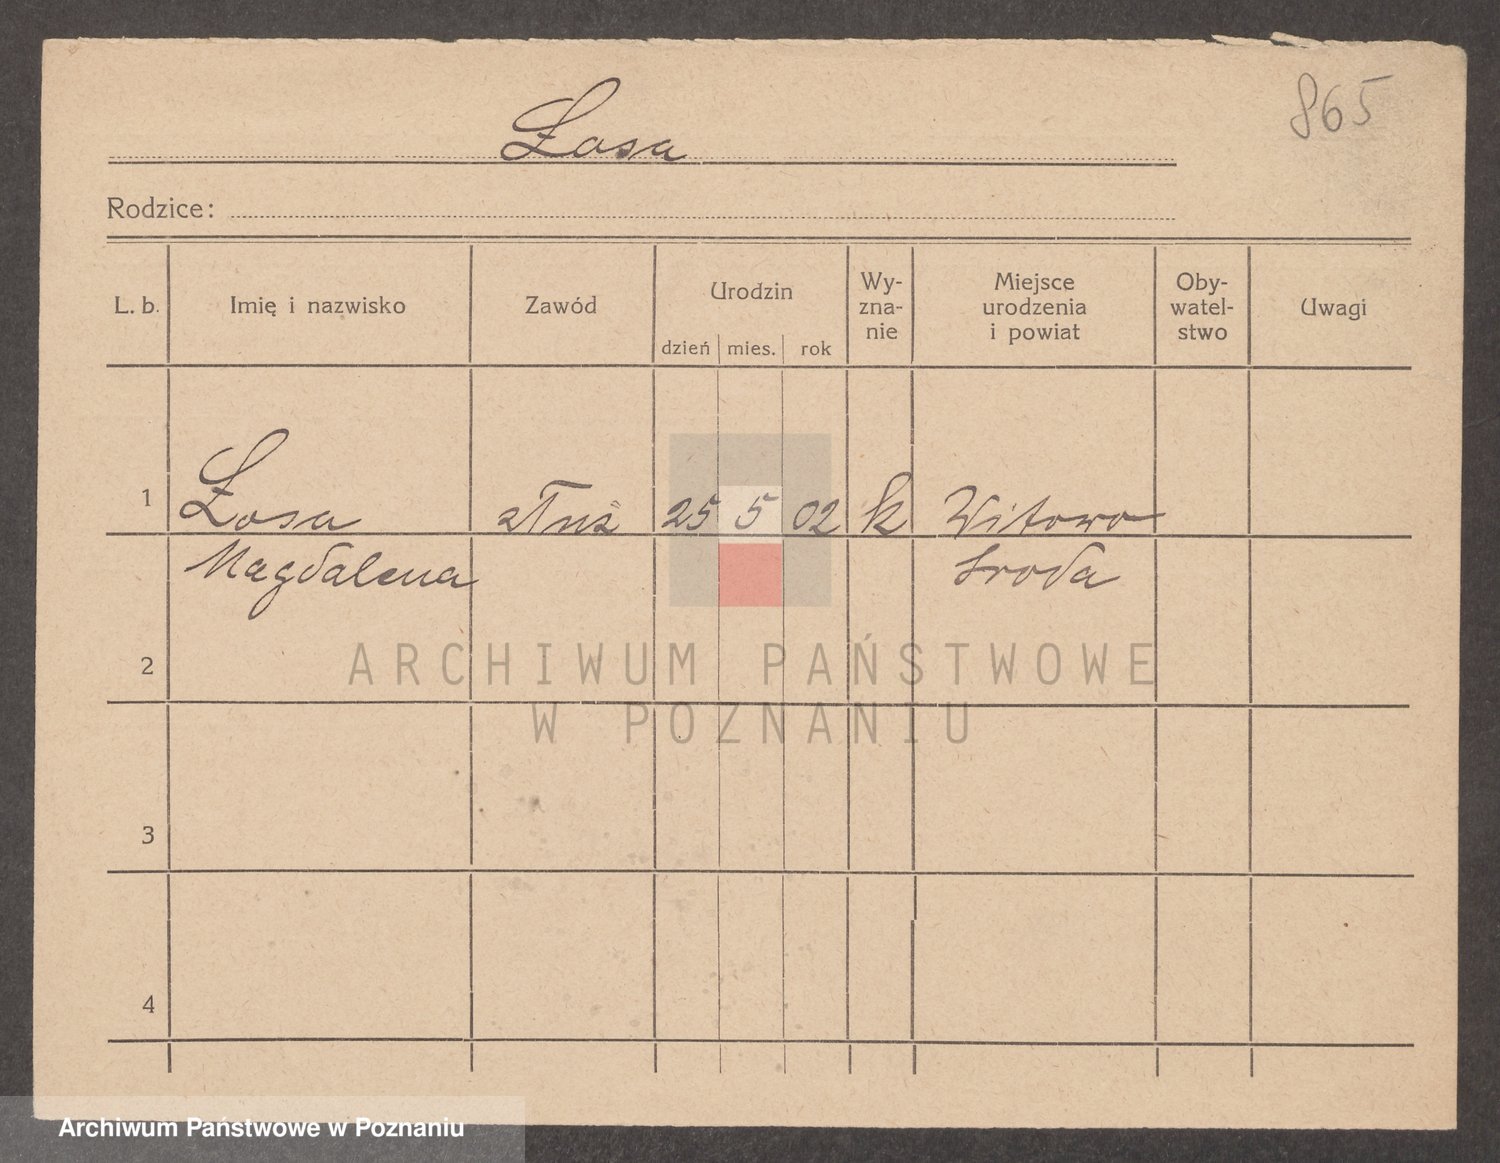 865
Łosa
Rodzice:
L. b. Imię i nazwisko Zawód Urodzin dzień mies. rok Wy-zna-nie Miejsce urodzenia i powiat Oby-watel-stwo Uwagi
1 Łosa służ 25 5 02 k Witowo
Magdalena Sroda
2
ARCHIWUM PAŃSTWOWE
W POZNANIU
3
4
Archiwum Państwowe w Poznaniu